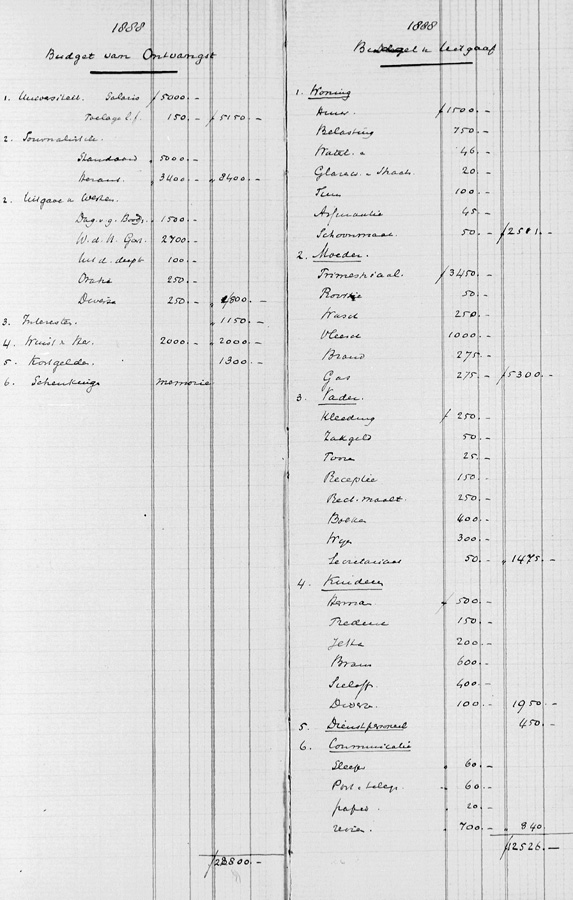 1888
Budget van Ontvangst
1. Universiteit. Salaris f 5000.-
Toelage l.f. 150.- f 5150.-
2. Journalistiek.
Standaard " 5000.-
Heraut " 3400.- " 8400.-
2. Uitgave v Werken.
Dag. v. g. Bood. " 1500.-
W. d. H. Gest. 2700.-
Uit d. diept 100.-
Oratie 250.-
Diverse 250.- " 4800.-
3. Interesten " 1150.-
4. 2000.- " 2000.-
5. Kostgelden 1300.-
6. Schenkinge memorie
f 22800.-
1888
Budget v Uitgaaf
1. Woning
Huur f 1500.-
Belasting 750.-
Water 46.-
Glazen 20.-
Tuin 100.-
Assurantie 45.-
Schoonmaak 50.- f 2511.-
2. Moeder.
Trimestriaal f 3450.-
50.-
Wasch 250.-
Vleesch 1000.-
Brand 275.-
Gas 275.- f 5300.-
3. Vader.
Kleeding f 250.-
Zakgeld 50.-
25.-
Receptie 150.-
Red. maalt. 250.-
Boeken 400.-
Wijn 300.-
Secretariaat 50.- " 1475.-
4. Kinderen
Herman f 500.-
Frederic 150.-
Jetta 200.-
Bram 600.-
400.-
Diverse 100.- 1950.-
5. Dienstpersoneel 450.-
6. Communicatie
60.-
Post. teleg. " 60.-
papier " 20.-
reizen " 700.- " 840.
f 12526.-